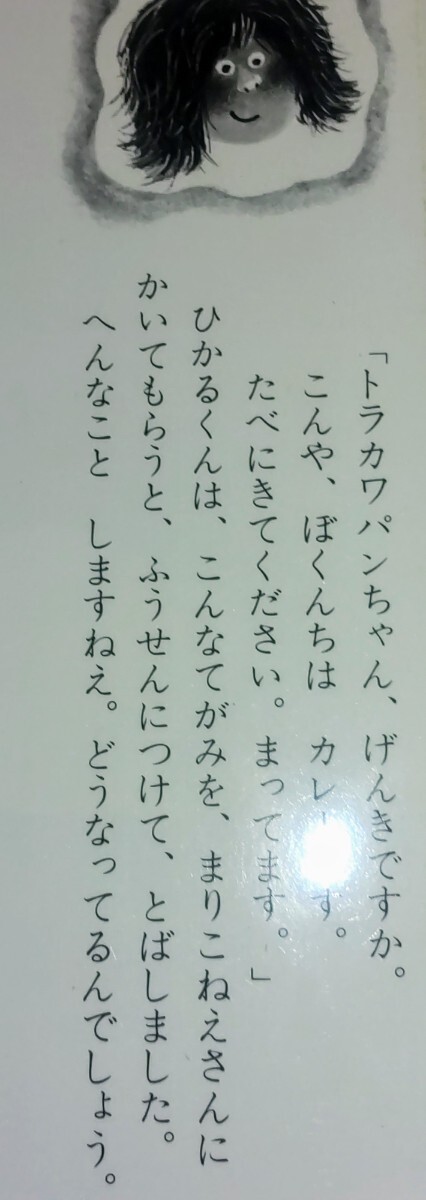 「トラカワパンちゃん、げんきですか。
こんや、ぼくんちは　カレー す。
たべにきてください。まってます。」
ひかるくんは、こんなてがみを、まりこねえさんに
かいてもらうと、ふうせんにつけて、とばしました。
へんなこと　しますねえ。どうなってるんでしょう。